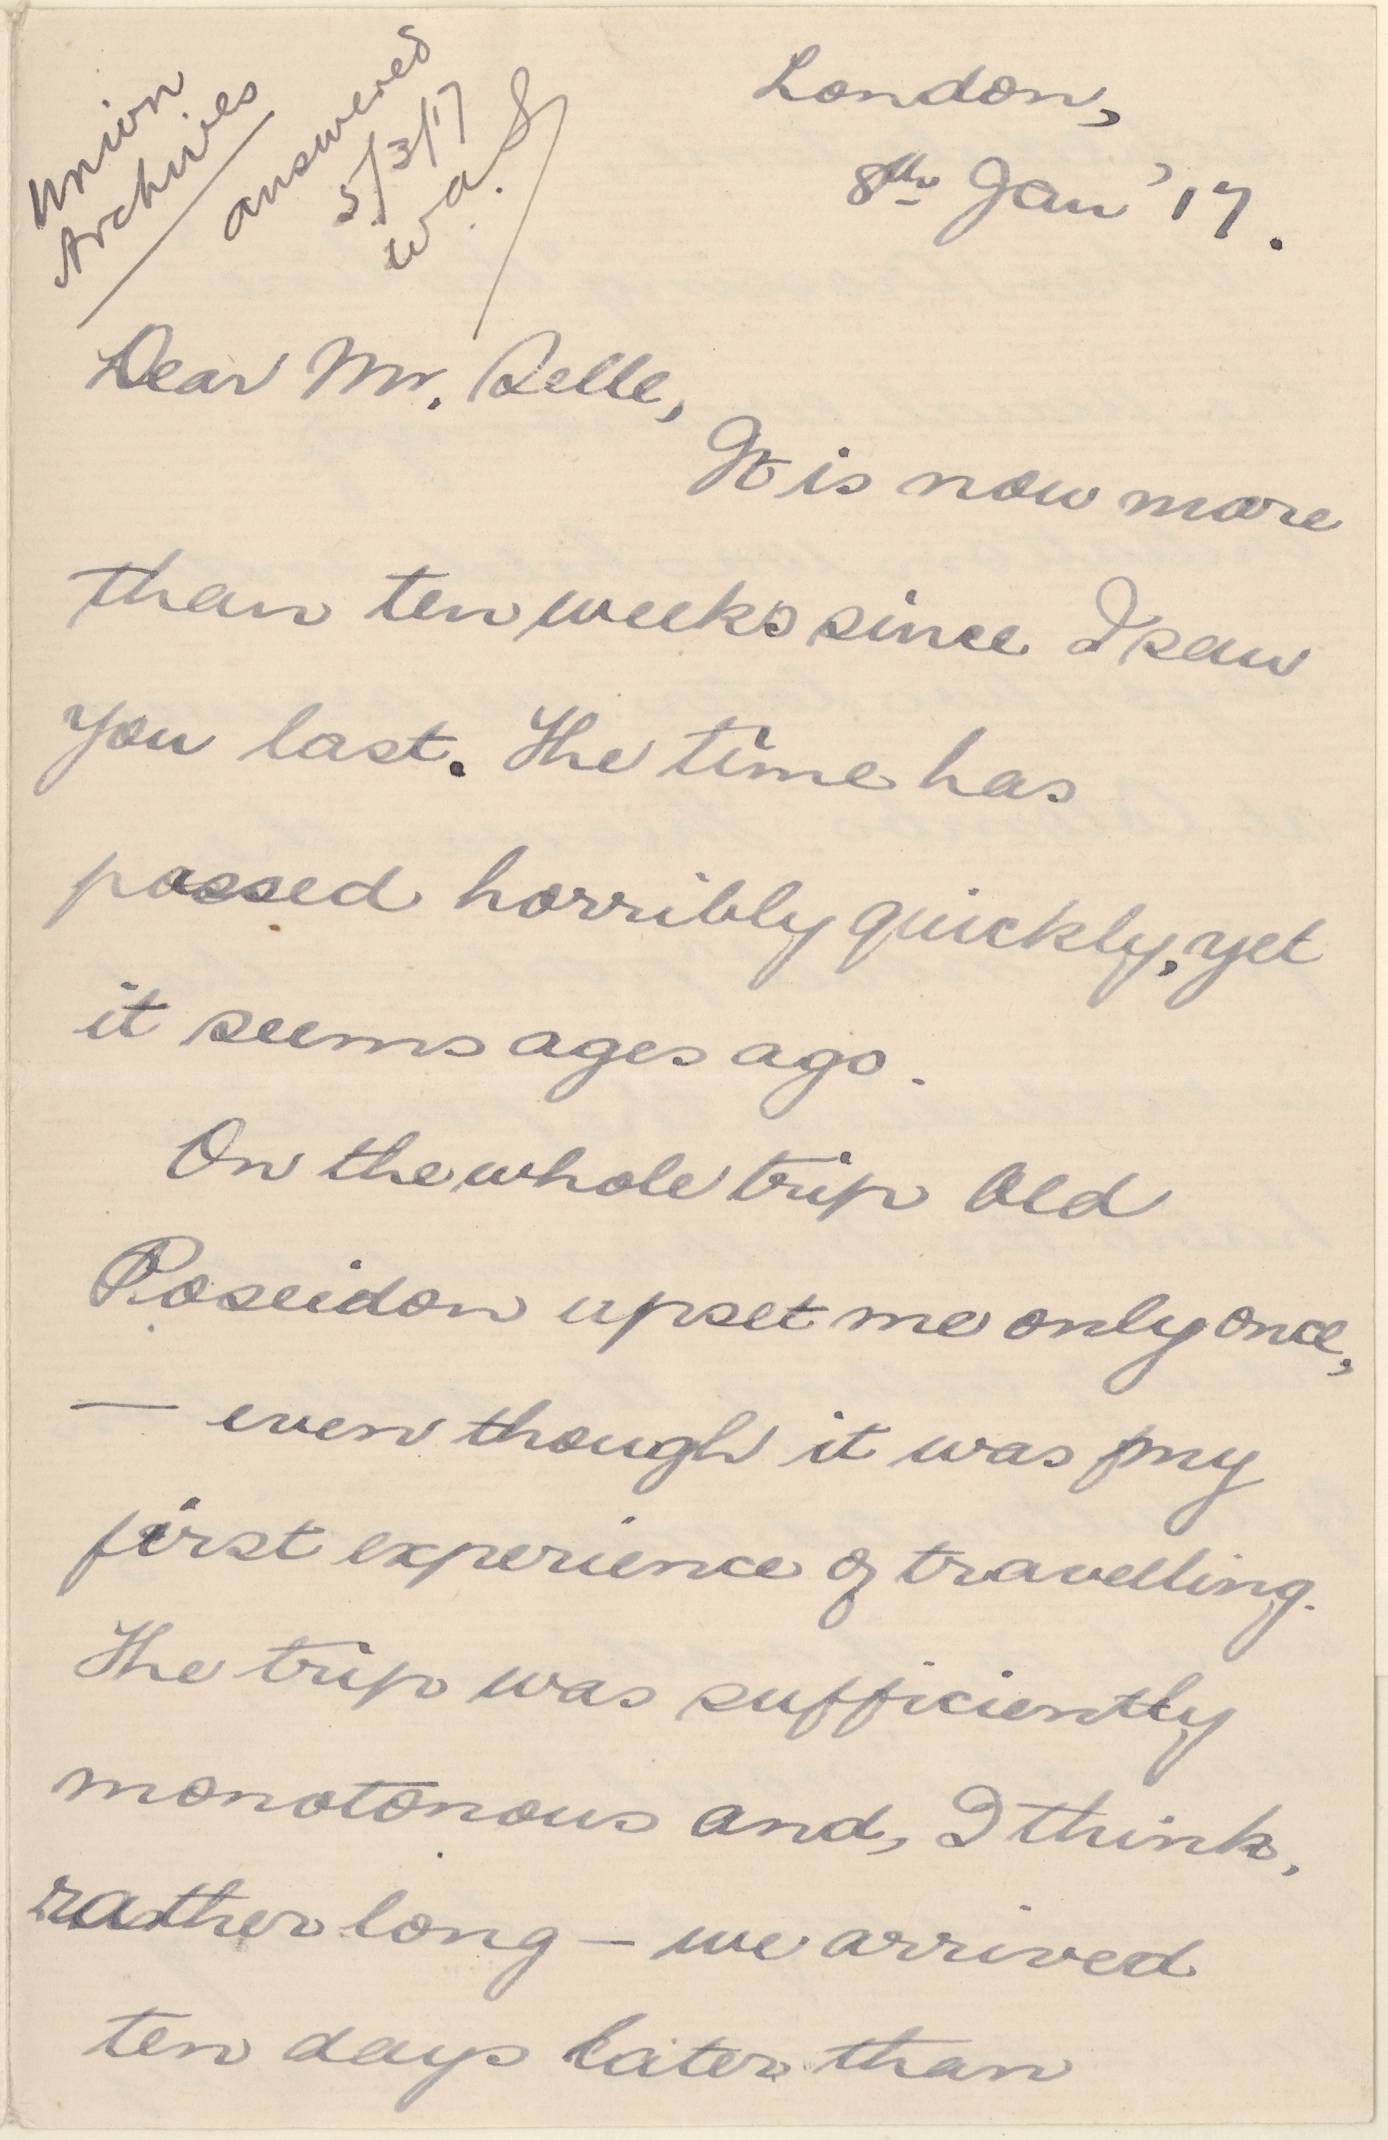 Union
Archives
answered
5/3/17
W.A.S.
London,
8th Jan '17.
Dear Mr. Selle,
It is now more
than ten weeks since I saw
you last. The time has
passed horribly quickly, yet
it seems ages ago.
On the whole trip Old
Poseidon upset me only once,
— even though it was my
first experience of travelling.
The trip was sufficiently
monotonous and, I think,
rather long — we arrived
ten days later than